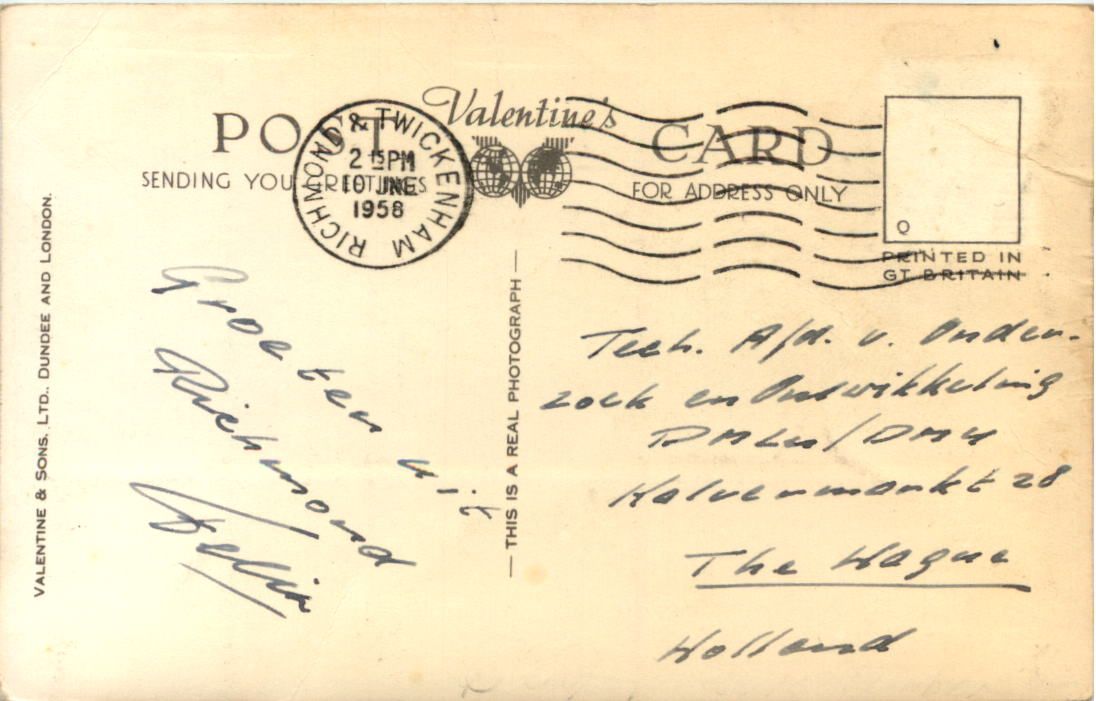 POST CARD
Valentine's
SENDING YOU GREETINGS
FOR ADDRESS ONLY
RICHMOND & TWICKENHAM
2 15 PM
10 JNE
1958
PRINTED IN
GT. BRITAIN
Q
VALENTINE & SONS, LTD., DUNDEE AND LONDON.
THIS IS A REAL PHOTOGRAPH
Groeten uit
Richmond
Tech. Afd. v. Onder-
zoek en Ontwikkeling
DMLu/DMH
Kalvermarkt 28
The Hague
Holland